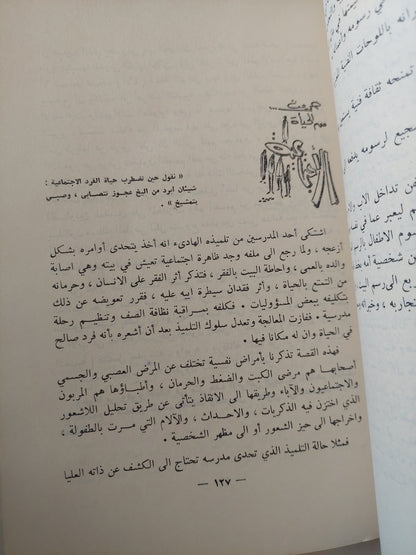 حرمت
الحياة
« نقول حين تضطرب حياة الفرد الاجتماعية :
شيئان ابرد من الثلج عجوز تتصابى ، وصبي
يتمشيخ » .
اشتكى أحد المدرسين من تلميذه الهادىء انه أخذ يتحدى أوامره بشكل
أزعجه ، ولما رجع الى ملفه وجد ظاهرة اجتماعية تعيش في بيته وهي اصابة
والده بالعمى ، واحاطة البيت بالفقر ، فتذكر أثر الفقر على الانسان ، وحرمانه
من التمتع بالحياة ، وأثر فقدان سيطرة ابيه عليه ، فقرر تعويضه عن ذلك
بتكليفه ببعض المسؤوليات . فكلفه بمراقبة نظافة الصف وتنظيم رحلة
مدرسية . ففازت المعالجة وتعدل سلوك التلميذ بعد أن أشعره بأنه فرد صالح
في الحياة وان له مكانا فيها .
فهذه القصة تذكرنا بأمراض نفسية تختلف عن المرض العصبي والجسمي
أصحابهـا هم مرضى الكبت والضغط والحرمان ، وأطباؤها هم المربون
والاجتماعيون والآباء وطريقها الى الانقاذ يتأتى عن طريق تحليل اللاشعور
الذي اختزن فيه الذكريات ، والاحداث ، والآلام التي مرت بالطفولة ،
واخراجها الى حيز الشعور أو الى مظهر الشخصية .
فمثلا حالة التلميذ الذي تحدى مدرسه تحتاج الى الكشف عن ذاته العليا
— ١٢٧ —